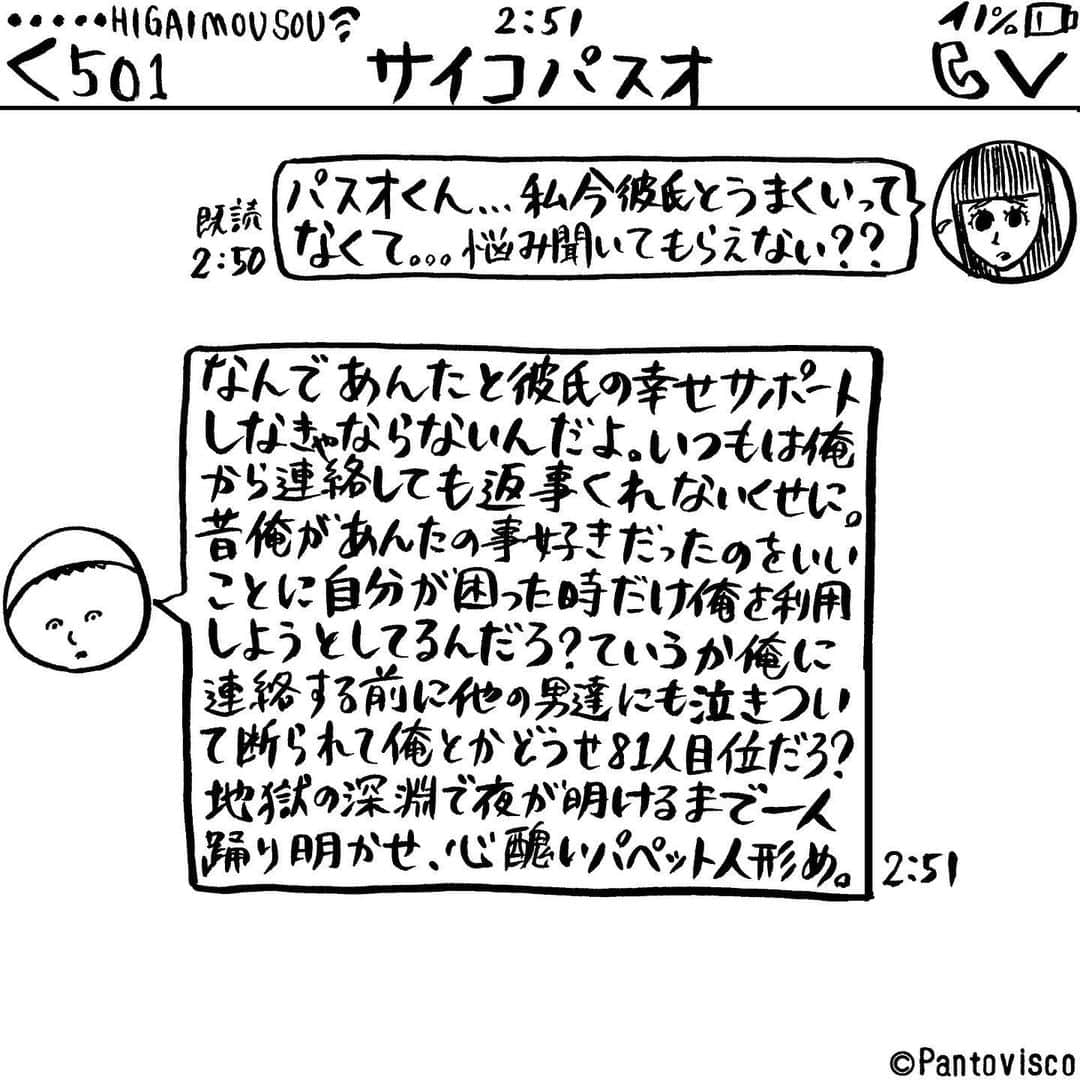 •••••HIGAIMOUSOU 2:51 41%
<501 サイコパスオ
パスオくん...私今彼氏とうまくいって
なくて。。。悩み聞いてもらえない??
既読
2:50
なんであんたと彼氏の幸せサポート
しなきゃならないんだよ。いつもは俺
から連絡しても返事くれないくせに。
昔俺があんたの事好きだったのをいい
ことに自分が困った時だけ俺を利用
しようとしてるんだろ?ていうか俺に
連絡する前に他の男達にも泣きつい
て断られて俺とかどうせ81人目位だろ?
地獄の深淵で夜が明けるまで一人
踊り明かせ、心醜いパペット人形め。
2:51
©Pantovisco